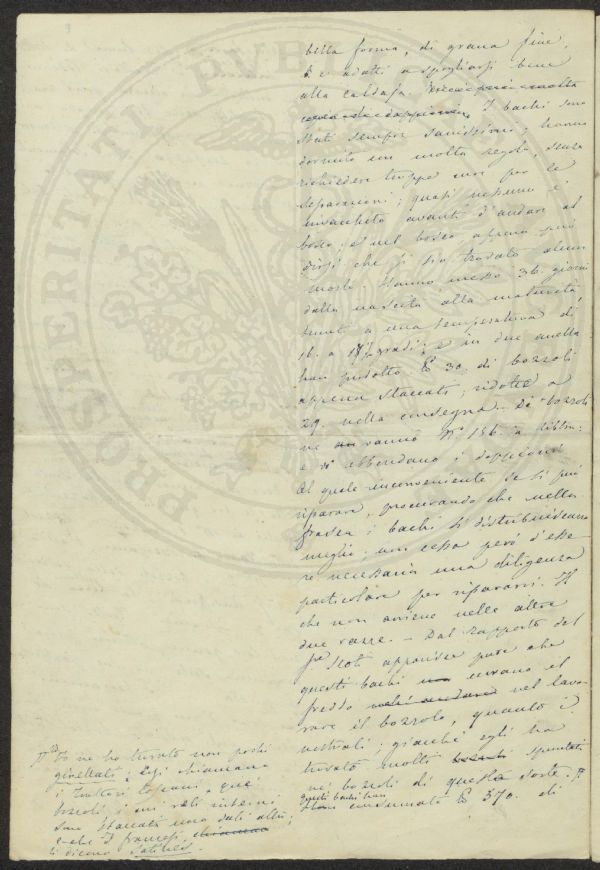 bella forma, di grana fine,
e adatti a spogliarsi bene
alla caldaja. I bachi sono
stati sempre sanissimi; hanno
dormito con molta regola, senza
richiedere troppe cure per le
separazioni; quasi nessuno è
invacchito avanti d'andare al
bosco; e nel bosco appena può
dirsi che si sia trovato alcun
morto. Hanno messo 36. giorni
dalla nascita alla maturità
a una temperatura di
16. a 17½ gradi; e in due
han prodotto ℔ 30. di bozzoli
appena staccati; ridotte a
29. nella consegna. Di bozzoli
ne vanno N.° 156. a libbra:
e vi abbondano i doppioni
al quale inconveniente se si può
riparare, procurando che nella
frasca i bachi si distribuiscano
meglio; non cessa però d'esse
re necessaria una diligenza
particolare per ripararvi. Il
che non avviene nelle altre
due razze. – Dal rapporto del
apparisce pure che
questi bachi curano il
freddo nel lavo
rare il bozzolo, quanto i
nostrali; giacchè egli ha
trovato molti spuntati
ne' bozzoli di questa sorte.
questi bachi han
consumato ℔ 370. di
Io ne ho trovato non pochi
giallati; così chiamano
i Trattori Toscani, quei
bozzoli i cui veli interni
sono staccati uno dall'altro;
e che I francesi
li dicono Satinés.
PVB
PROSPERITATI